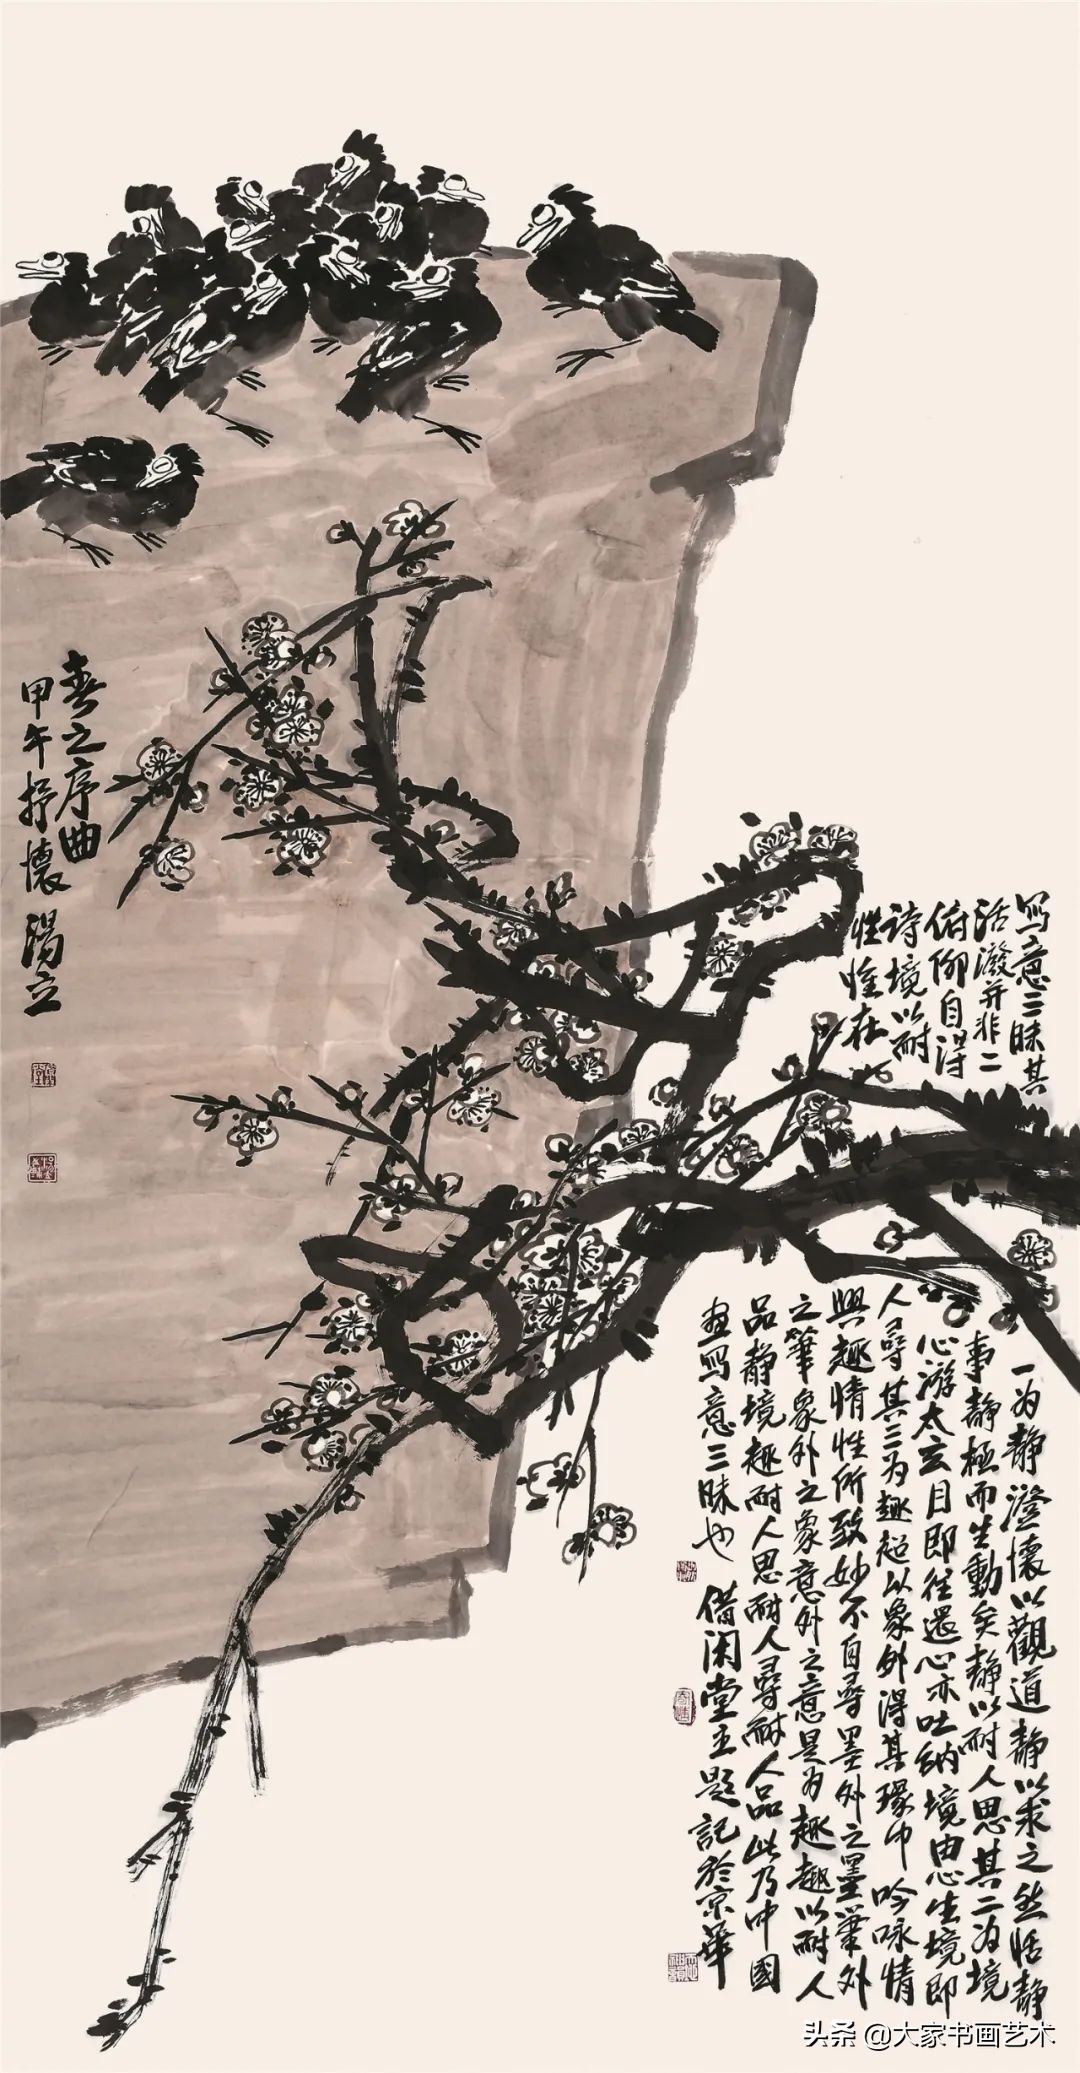 春之序曲
甲午抒懷 湯立
写意三昧其一为静澄懷以觀道静以求之然恬静
活潑并非二事静極而生動矣静以耐人思其二为境
俯仰自得心游太玄目即往還心亦吐納境由心生境即
诗境以耐人尋其三为趣超以象外得其環中吟咏情
性惟在興趣情性所致妙不自尋墨外之墨筆外
之筆象外之象意外之意是为趣趣以耐人
品静境趣耐人思耐人尋耐人品此乃中國
画写意三昧也 借闲堂主題記於京華
头条 @大家书画艺术